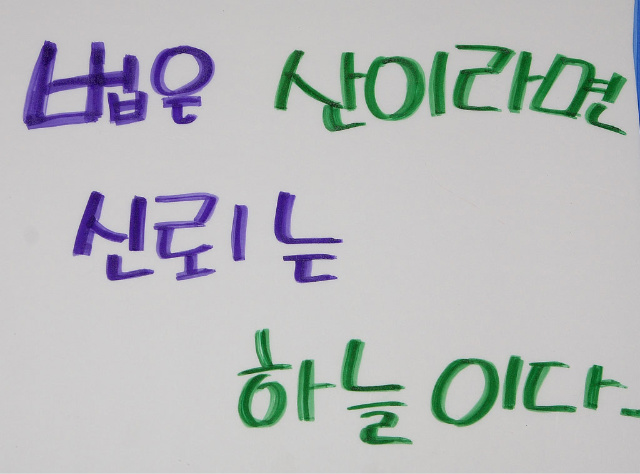 법은 산이라면
신뢰는
하늘이다.